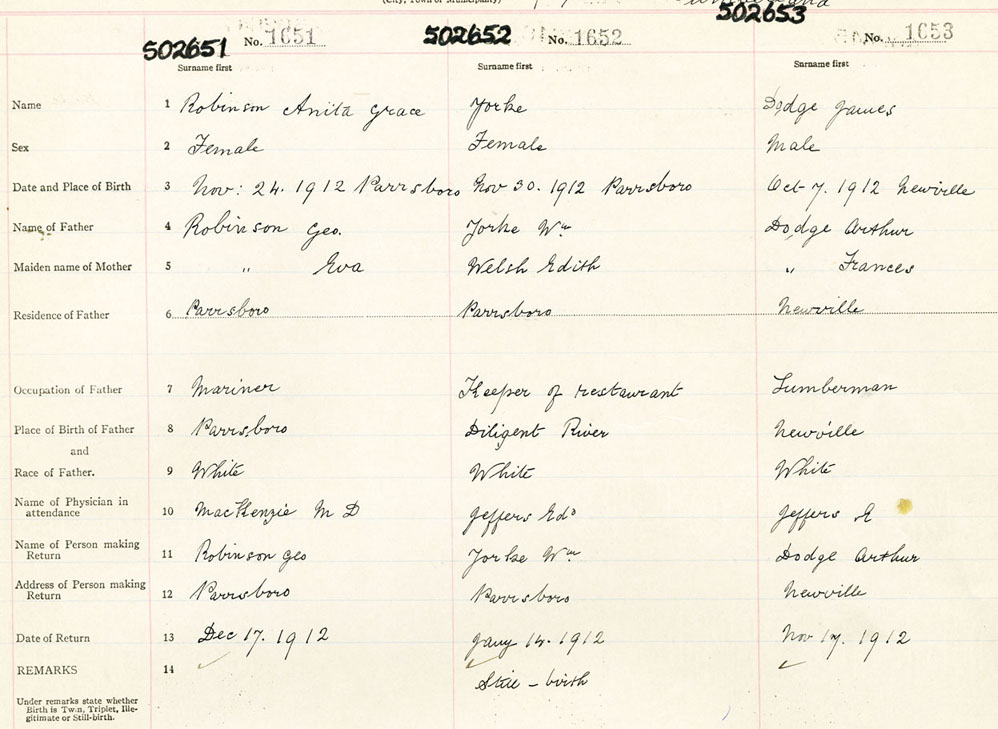 (City, Town or Municipality)
502651 No. 1651 502652 No. 1652 502653 No. 1653
Surname first Surname first Surname first
Name 1 Robinson Anita Grace Yorke Dodge James
Sex 2 Female Female Male
Date and Place of Birth 3 Nov: 24. 1912 Parrsboro Nov 30. 1912 Parrsboro Oct 7. 1912 Newville
Name of Father 4 Robinson Geo. Yorke Wm Dodge Arthur
Maiden name of Mother 5 " Eva Welsh Edith " Frances
Residence of Father 6 Parrsboro Parrsboro Newville
Occupation of Father 7 Mariner Keeper of restaurant Lumberman
Place of Birth of Father 8 Parrsboro Diligent River Newville
and
Race of Father. 9 White White White
Name of Physician in
attendance 10 MacKenzie M D Jeffers Edd Jeffers E
Name of Person making
Return 11 Robinson Geo Yorke Wm Dodge Arthur
Address of Person making
Return 12 Parrsboro Parrsboro Newville
Date of Return 13 Dec 17. 1912 Jany 14. 1912 Nov 17. 1912
REMARKS 14
Still - birth
Under remarks state whether
Birth is Twin, Triplet, Ille-
gitimate or Still-birth.